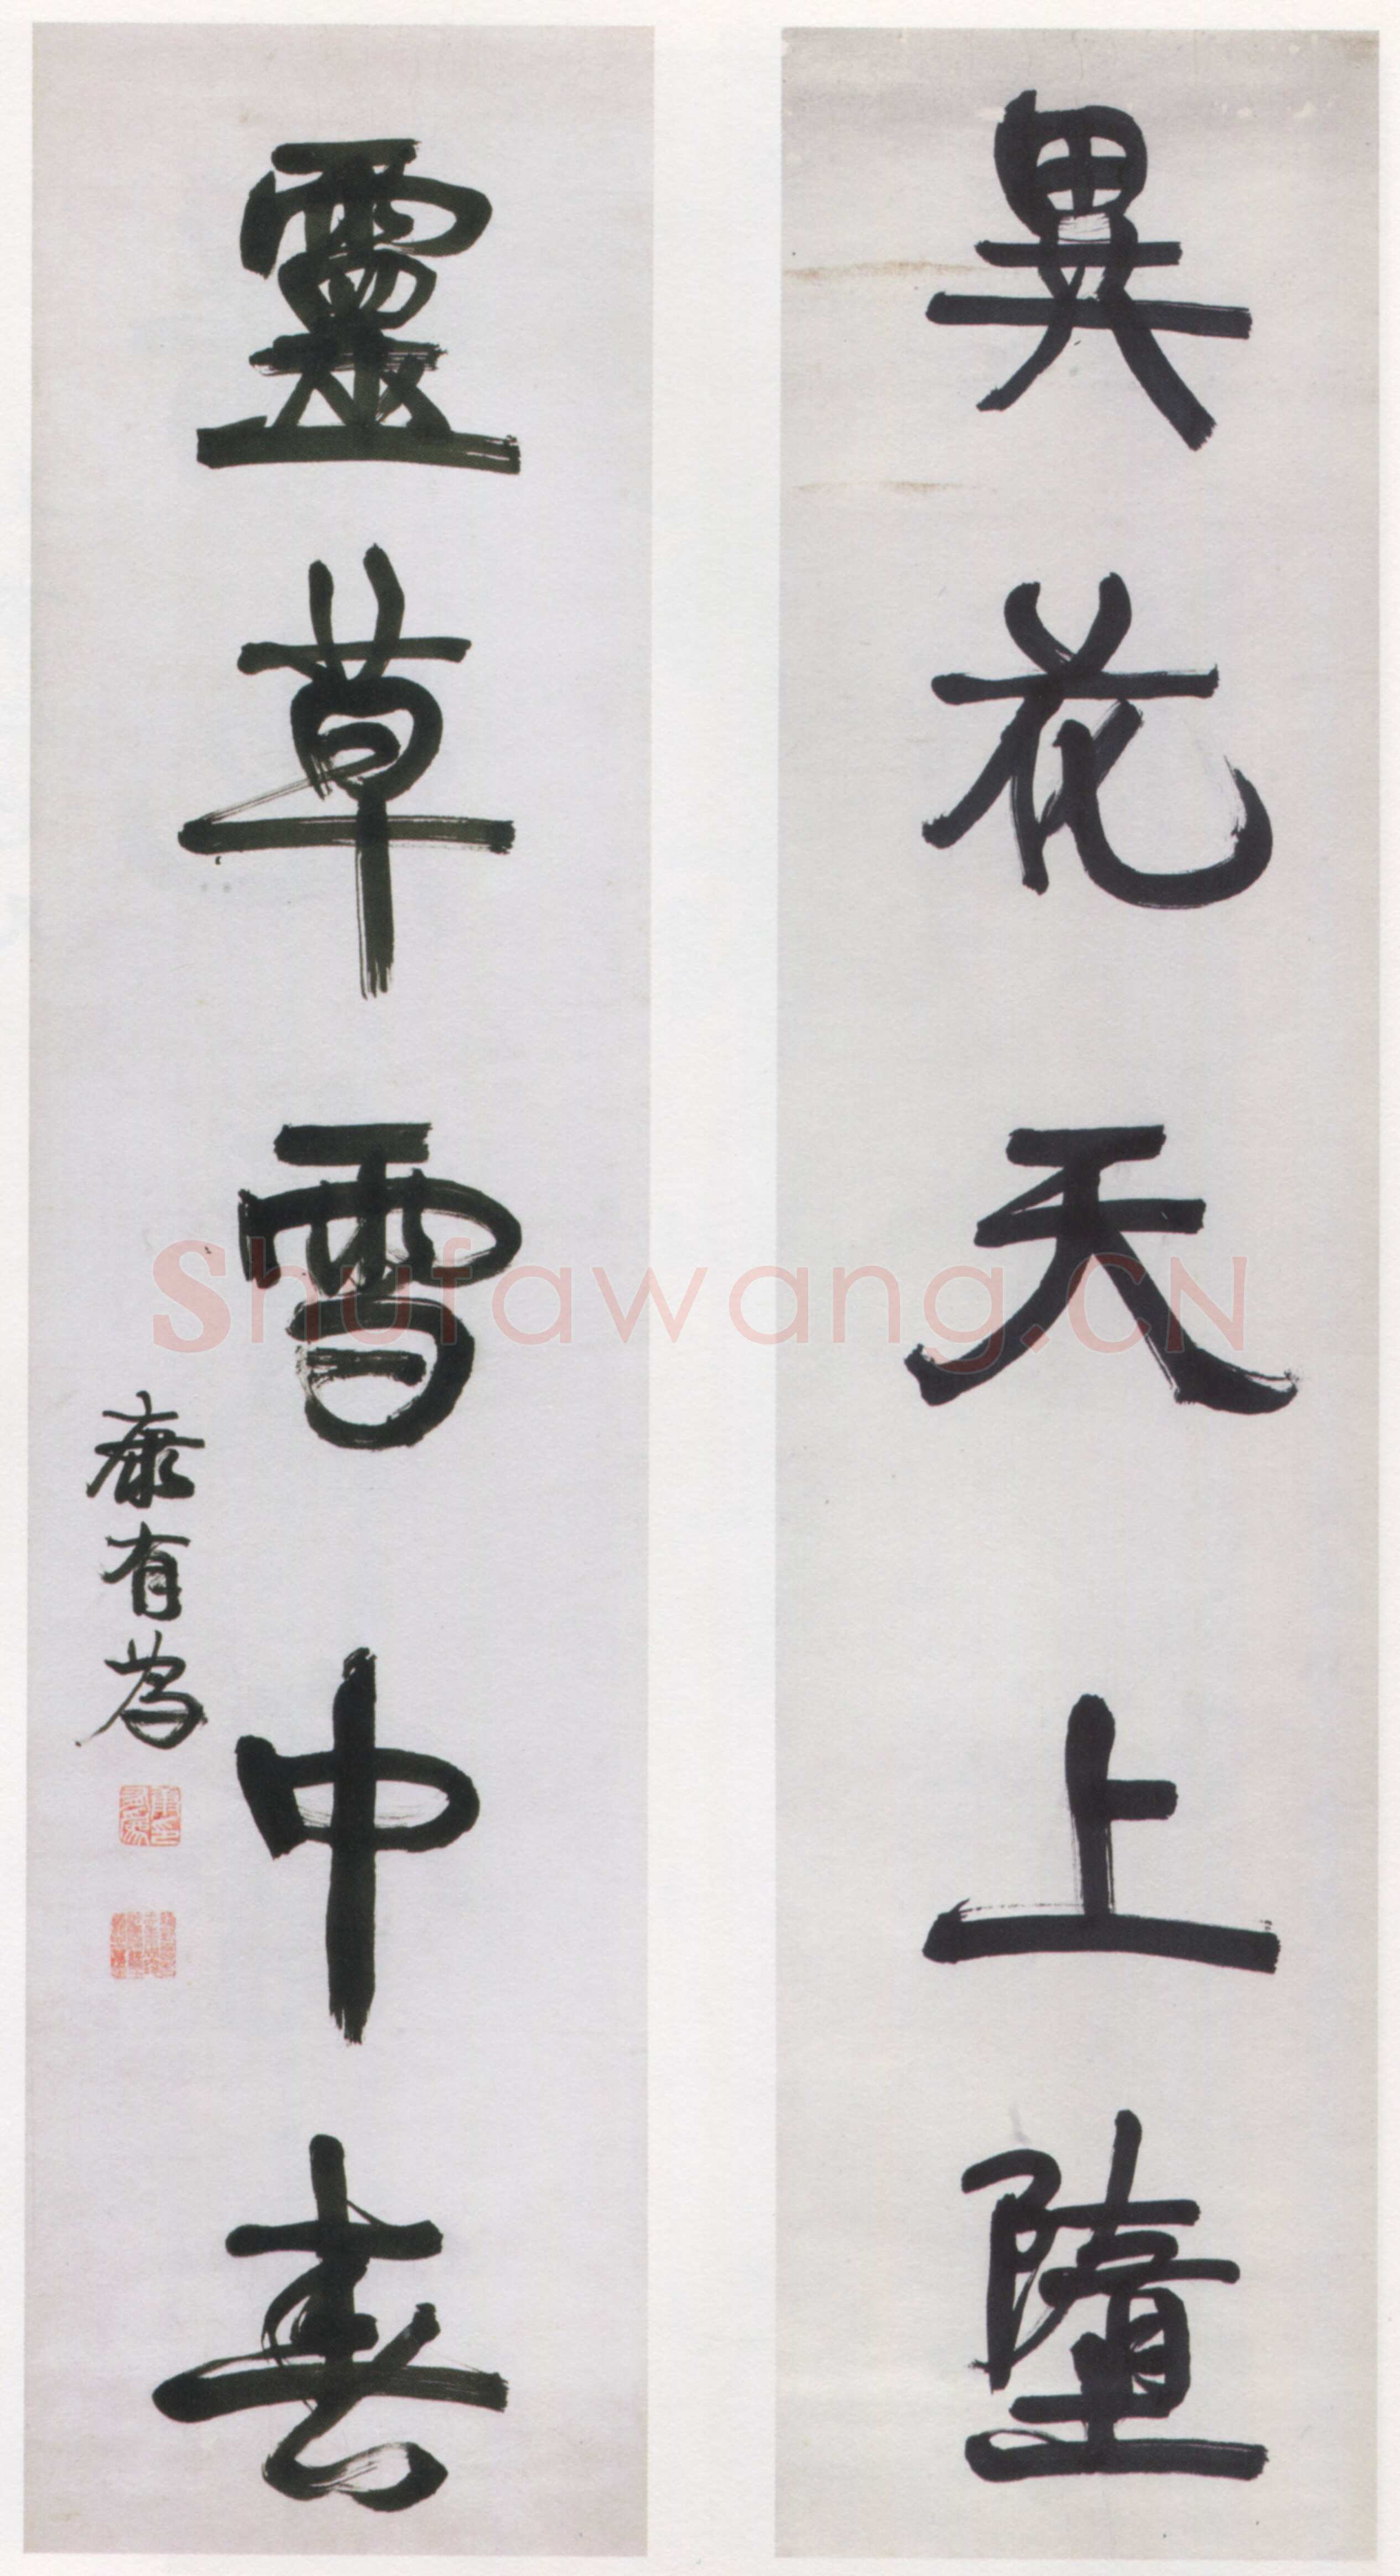 異花天上墮
靈草雪中春
康有為
Shufawang.CN